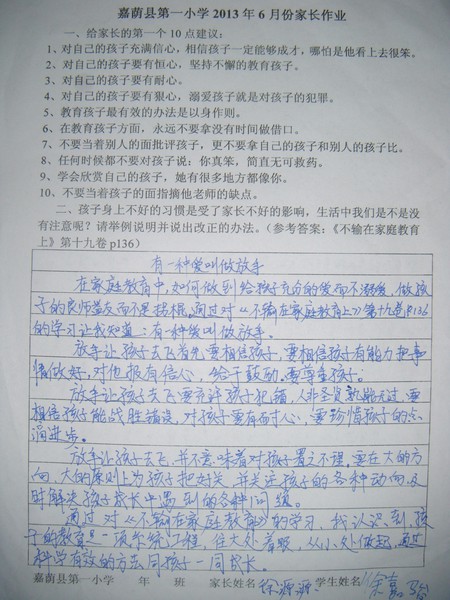 嘉荫县第一小学 2013 年 6 月份家长作业
一、给家长的第一个 10 点建议：
1、对自己的孩子充满信心，相信孩子一定能够成才，哪怕是他看上去很笨。
2、对自己的孩子要有恒心，坚持不懈的教育孩子。
3、对自己的孩子要有耐心。
4、对自己的孩子要有狠心，溺爱孩子就是对孩子的犯罪。
5、教育孩子最有效的办法是以身作则。
6、在教育孩子方面，永远不要拿没有时间做借口。
7、不要当着别人的面批评孩子，更不要拿自己的孩子和别人的孩子比。
8、任何时候都不要对孩子说：你真笨，简直无可救药。
9、学会欣赏自己的孩子，她有很多地方都像你。
10、不要当着孩子的面指摘他老师的缺点。
二、孩子身上不好的习惯是受了家长不好的影响，生活中我们是不是没
有注意呢？请举例说明并说出改正的办法。（参考答案：《不输在家庭教育
上》第十九卷 p136）
有一种爱叫做放手
在家庭教育中，如何做到给孩子充分的爱而不溺爱，做孩
子的良师益友而不是拐棍，通过对《不输在家庭教育上》第十九卷p136
的学习让我知道：有一种爱叫做放手。
放手让孩子去飞首先要相信孩子，要相信孩子有能力把事
情做好，对他报有信心，给予鼓励，要尊重孩子；
放手让孩子去飞要允许孩子犯错，人非圣贤孰能无过，要
相信孩子能战胜错误，对孩子要有耐心，要珍惜孩子的点
滴进步。
放手让孩子去飞，并不意味着对孩子置之不理，要在大的方
向、大的原则上为孩子把好关，并关注孩子的各种动向，及
时解决孩子成长中遇到的各种问题。
通过对《不输在家庭教育》的学习，我认识到，孩
子的教育是一项系统工程，从大处着眼，从小处做起，通过
科学有效的方法同孩子一同成长。
嘉荫县第一小学 年 班 家长姓名 徐 学生姓名 徐嘉